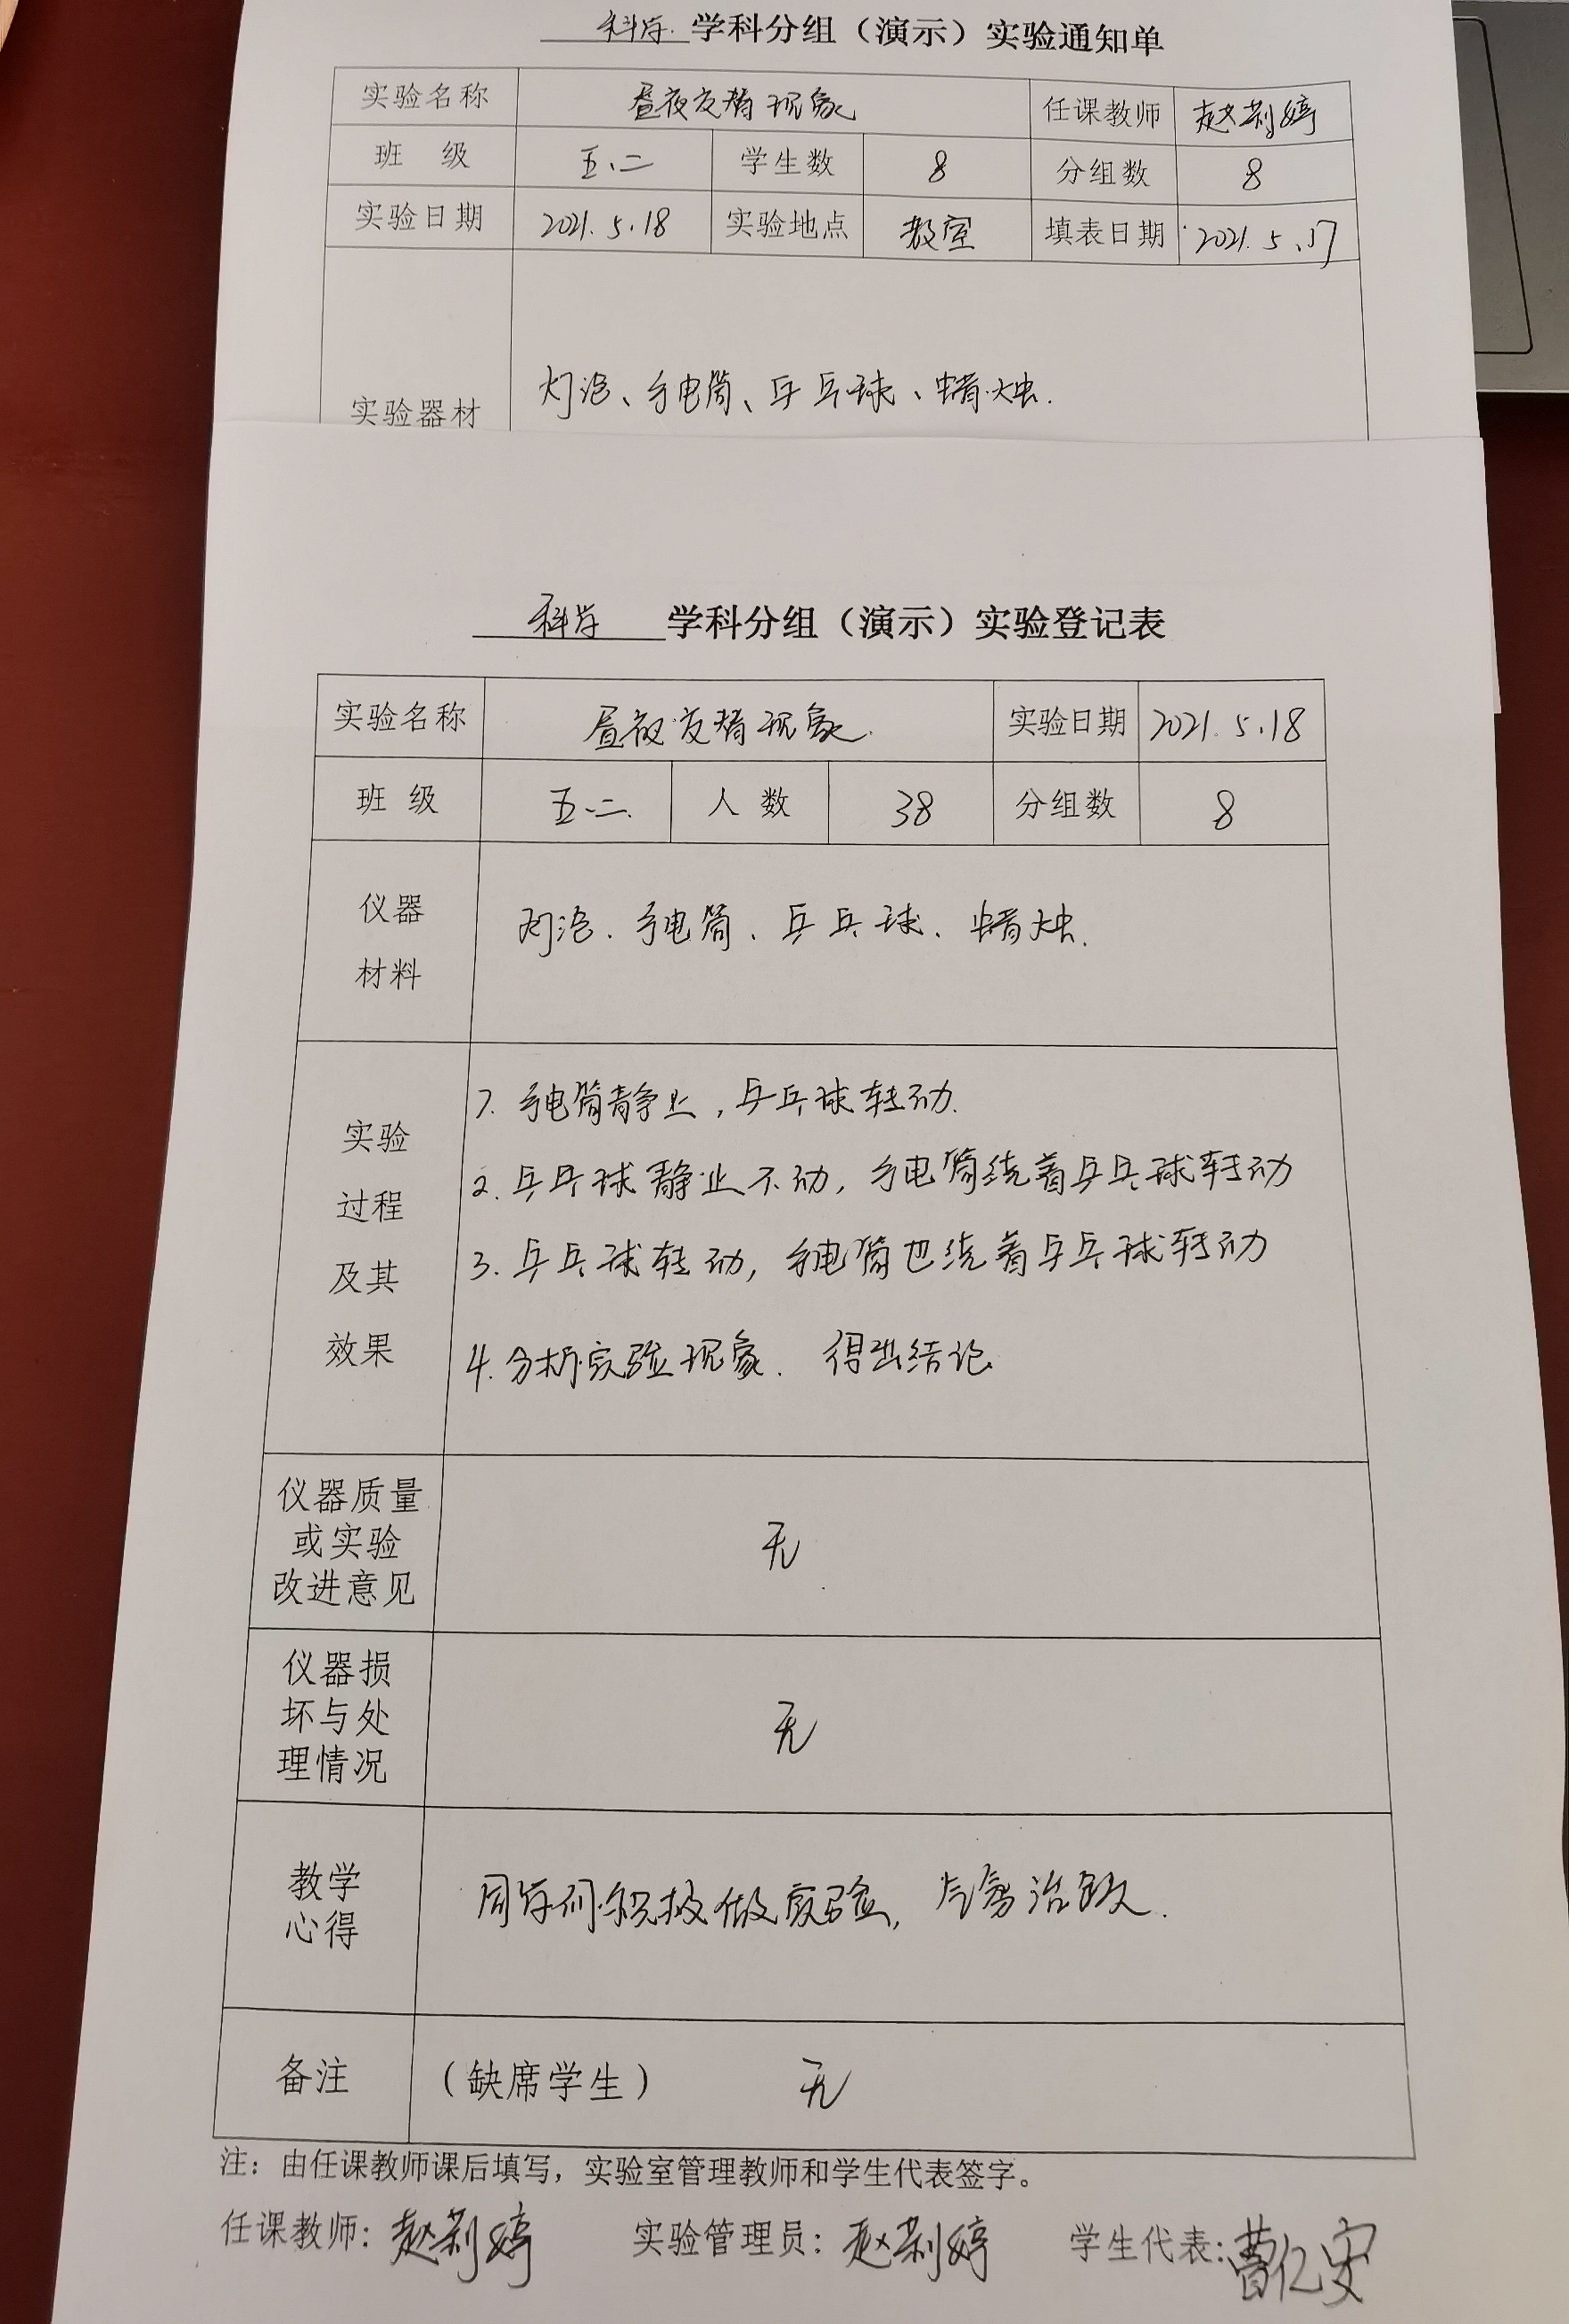 科学 学科分组（演示）实验通知单
实验名称 昼夜交替现象 任课教师 赵莉婷
班 级 五、二 学生数 8 分组数 8
实验日期 2021.5.18 实验地点 教室 填表日期 2021.5.17
实验器材 灯泡、手电筒、乒乓球、蜡烛.
科学 学科分组（演示）实验登记表
实验名称 昼夜交替现象. 实验日期 2021.5.18
班 级 五.二. 人 数 38 分组数 8
仪器
材料
灯泡、手电筒、乒乓球、蜡烛.
实验
过程
及其
效果
1. 手电筒静止，乒乓球转动.
2. 乒乓球静止不动，手电筒绕着乒乓球转动
3. 乒乓球转动，手电筒也绕着乒乓球转动
4. 分析实验现象. 得出结论
仪器质量
或实验
改进意见
无
仪器损
坏与处
理情况
无
教学
心得
同学们积极做实验，气氛活跃.
备注 （缺席学生） 无
注：由任课教师课后填写，实验室管理教师和学生代表签字。
任课教师：赵莉婷 实验管理员：赵莉婷 学生代表：曹亿安